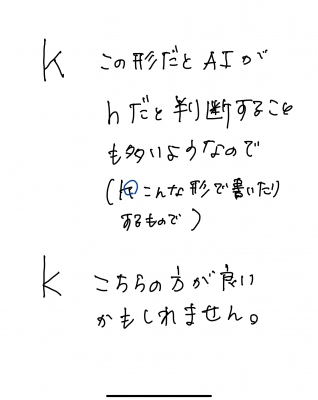 k この形だとAIが
hだと判断すること
も多いようなので
(k こんな形で書いたり
するもので)
k こちらの方が良い
かもしれません。